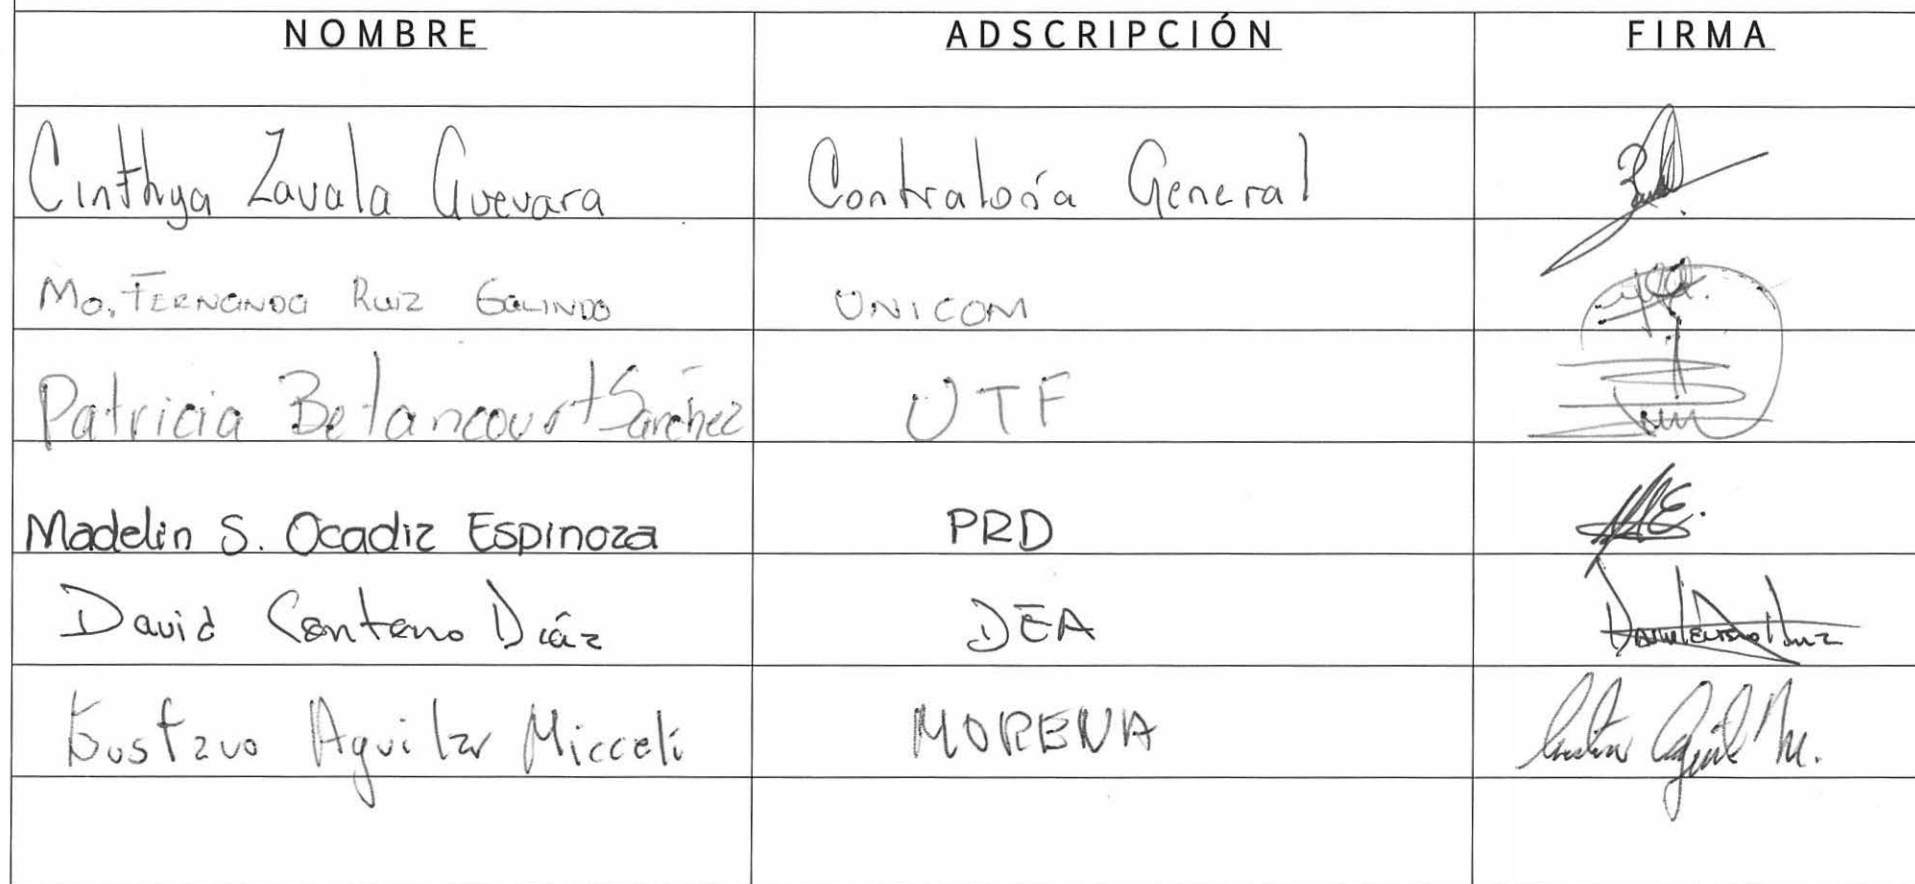 NOMBRE ADSCRIPCIÓN FIRMA
Cinthya Zavala Guevara Contraloría General
Ma. Fernanda Ruiz Galindo UNICOM
Patricia Betancourt Sánchez UTF
Madelin S. Ocadiz Espinoza PRD
David Centeno Diáz DEA
Gustavo Aguilar Micceli MORENA